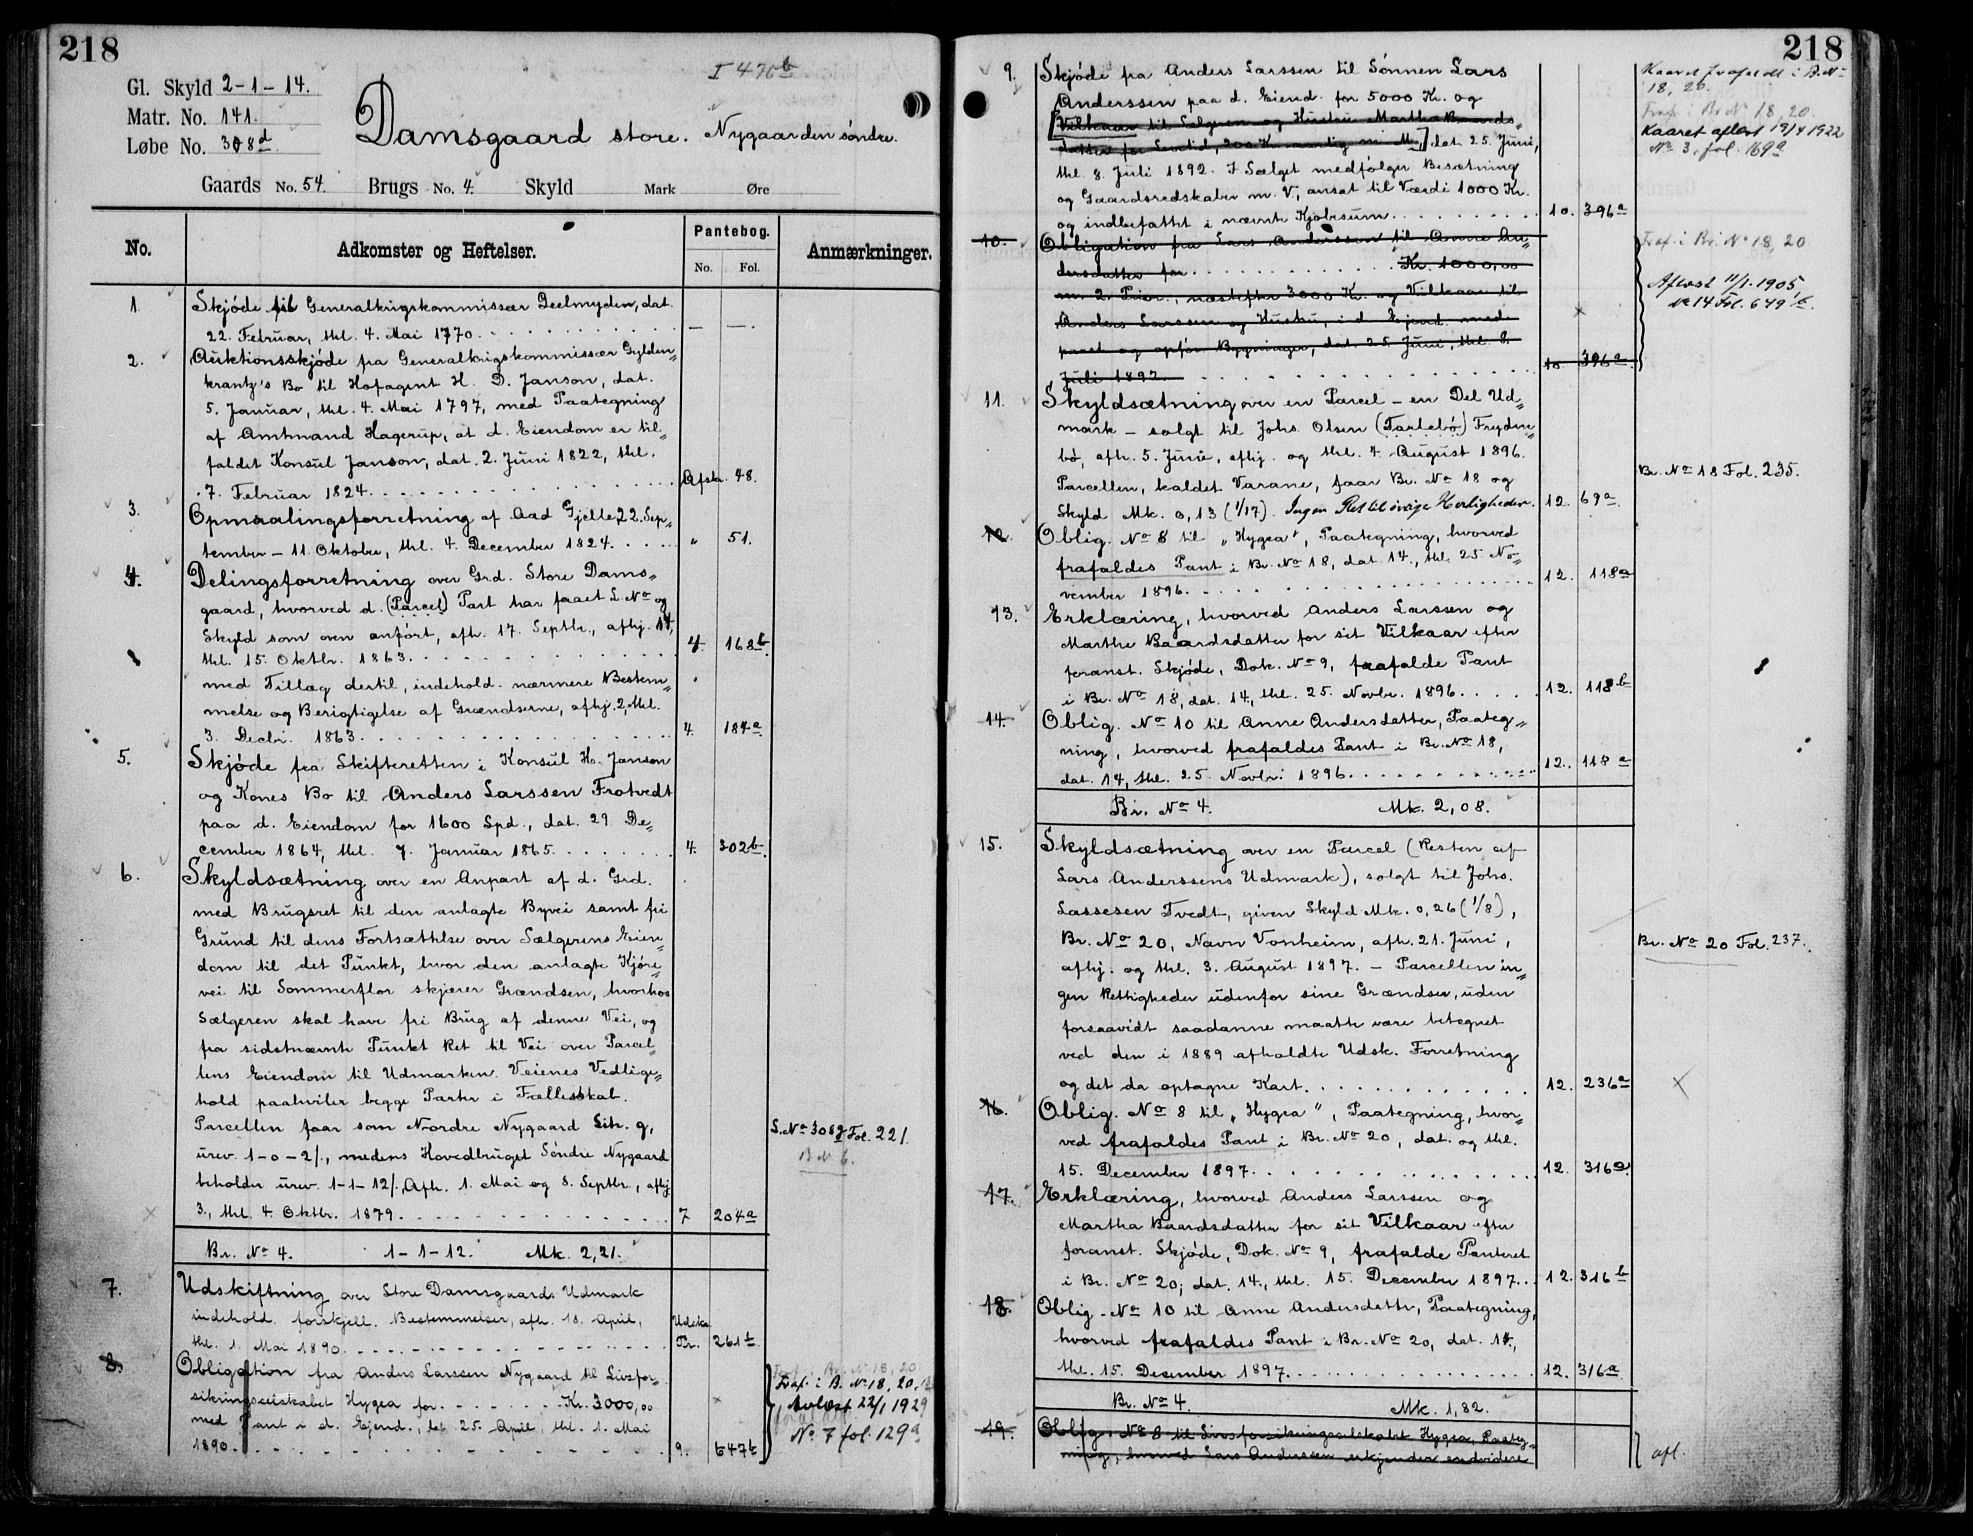 218
I 476b
Gl. Skyld 2-1-14.
Matr. No. 141.
Løbe No. 308d.
Damsgaard store. Nygaarden søndre.
Gaards No. 54. Brugs No. 4. Skyld Mark Øre
No. Adkomster og Heftelser. Pantebog. No. Fol. Anmærkninger.
1. Skjøde til Generalkrigskommissær Deelmyden, dat.
22. Februar, thl. 4. Mai 1770. — —.
2. Auktionsskjøde fra Generalkrigskommissær Gylden„
krantz's Bo til Hofagent H. D. Janson, dat.
5. Januar, thl. 4. Mai 1797, med Paategning
af Amtmand Hagerup, at d. Eiendom er til„
faldet Konsul Janson, dat. 2. Juni 1822, thl.
7. Februar 1824. Afsk. 48.
3. Opmaalingsforretning af Aad Gjelle, 22. Sep„
tember – 11. Oktober, thl. 4. December 1824. „ 51.
4. Delingsforretning over Grd. Store Dams„
gaard, hvorved d. (Parcel) Part har faaet L. No og
Skyld som oven anført, afh. 17. Septbr., afhj. 14,
thl. 15. Oktbr. 1863. 4. 168b.
med Tillæg dertil, indehold. nærmere Bestem„
melse og Berigtigelse af Grændserne, afhj. 2, thl.
3. Decbr. 1863. 4. 184a.
5. Skjøde fra Skifteretten i Konsul H. Janson
og Kones Bo til Anders Larssen Frotvedt
paa d. Eiendom for 1600 Spd., dat. 29. De„
cember 1864, thl. 7. Januar 1865. 4. 302b.
6. Skyldsætning over en Anpart af d. Grd.
med Brugsret til den anlagte Byvei samt fri
Grund til dens Fortsættelse over Sælgerens Eien„
dom til det Punkt, hvor den anlagte Kjøre„
vei til Sommerflor skjærer Grændsen, hvorhos
Sælgeren skal have fri Brug af denne Vei, og
fra sidstnævnte Punkt Ret til Vei over Parcel„
lens Eiendom til Udmarken. Veienes Vedlige„
hold paahviler begge Parter i Fællesskab.
Parcellen faar som Nordre Nygaard Litr. g,
urev. 1-0-2/., medens Hovedbruget Søndre Nygaard
beholder urev. 1-1-12/. Afh. 1. Mai og 8. Septbr., afhj.
3., thl. 4. Oktbr. 1879. 7 204a
L. No 308g Fol. 221.
B No 6.
Br. No 4. 1-1-12. Mk. 2,21.
7. Udskiftning over Store Damsgaards Udmark
indehold. forskjell. Bestemmelser, afh. 18. April,
thl. 1. Mai 1890. Udska. Pr. 261b
8. Obligation fra Anders Larssen Nygaard til Livsfor„
sikringsselskabet Hygea for Kr. 3000,00
med Pant i d. Ejend., dat. 25. April, thl. 1. Mai
1890. 9. 647b
Fraf. i Br. No 18, 20
Fraf. i B. No 18, 20,
Avlæst 22/1 1929
No. 7 fol. 129a
218
9. Skjøde fra Anders Larssen til Sønnen Lars
Anderssen paa d. Eiend. for 5000 Kr. og
[Vilkaar til Sælgeren og Hustru Martha Baards„
datter for Levetid, 200 Kr. aarlig m. M.] dat. 25. Juni,
thl. 8. Juli 1892. I Sælget medfølger Besætning
og Gaardsredskaber m. V., ansat til Værdi 1000 Kr.
og indbefattet i nævnte Kjøbesum. 10. 396a
Kaaret frafaldt i B. No
18, 20.
Fraf. i Br. No 18, 20.
Kaaret aflæst 19/4 1922
No 3, fol. 169a
10. Obligation fra Lars Anderssen til Anne An„
dersdatter for Kr. 1000,00
m. 2. Prior., næstefter 3000 Kr. og Vilkaar til
Anders Larssen og Hustru, i d. Ejend. med
paast. og opfør. Bygninger, dat. 25. Juni, thl. 8.
Juli 1892. 10 396a.
Fraf. i Br. No 18, 20
Aflæst 11/1. 1905
No 14 Fol. 649b.
11. Skyldsætning over en Parcel – en Del Ud„
mark – solgt til Johs. Olsen (Tartebø) Fryden„
bø, afh. 5. Juni, afhj. og thl. 4. August 1896.
Parcellen, kaldet Varane, faar Br. No 18 og
Skyld Mk. 0,13 (1/17). Ingen Ret til øvrige Herligheder. 12. 69a
Br. No 18 Fol. 235.
12. Oblig. No 8 til „Hygea", Paategning, hvorved
frafaldes Pant i Br. No 18, dat. 14., thl. 25. No„
vember 1896. 12. 118a
13. Erklæring, hvorved Anders Larssen og
Marthe Baardsdatter for sit Vilkaar efter
foranst. Skjøde, Dok. No 9, frafalde Pant
i Br. No 18, dat. 14., thl. 25. Novbr. 1896. 12. 118b
14. Oblig. No 10 til Anne Andersdatter, Paateg„
ning, hvorved frafaldes Pant i Br. No 18,
dat. 14, thl. 25. Novbr. 1896. 12. 118a
Br. No 4. Mk. 2,08.
15. Skyldsætning over en Parcel (Resten af
Lars Anderssens Udmark), solgt til Johs.
Lassesen Tvedt, given Skyld Mk. 0,26 (1/8),
Br. No 20, Navn Vonheim, afh. 21. Juni,
afhj. og thl. 3. August 1897. – Parcellen in„
gen Rettigheder udenfor sine Grændser, uden
forsaavidt saadanne maatte være betegnet
ved den i 1889 afholdte Udsk. Forretning
og det da optagne Kart. 12. 236a
Br. No 20 Fol. 237.
16. Oblig. No 8 til „Hygea", Paategning, hvor„
ved frafaldes Pant i Br. No 20, dat. og thl.
15. December 1897. 12. 316a.
17. Erklæring, hvorved Anders Larssen og
Martha Baardsdatter for sit Vilkaar efter
foranst. Skjøde, Dok. No 9, frafalde Panteret
i Br. No 20, dat. 14., thl. 15. December 1897. 12. 316b
18. Oblig. No 10 til Anne Andersdatter, Paategning,
hvorved frafaldes Pant i Br. No 20, dat. 14.,
thl. 15. December 1897. 12. 316a
Br. No 4. Mk. 1,82.
19. Oblig. No 8 til Livsforsikringsselskabet Hygea, Paateg„
ning, hvorved Lars Anderssen erkjender endvidere
afl.